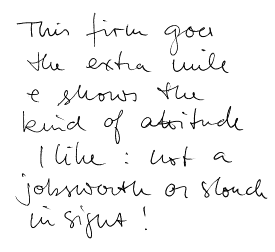 This firm goes
the extra mile
& shows the
kind of attitude
I like : not a
jobsworth or slouch
in sight !